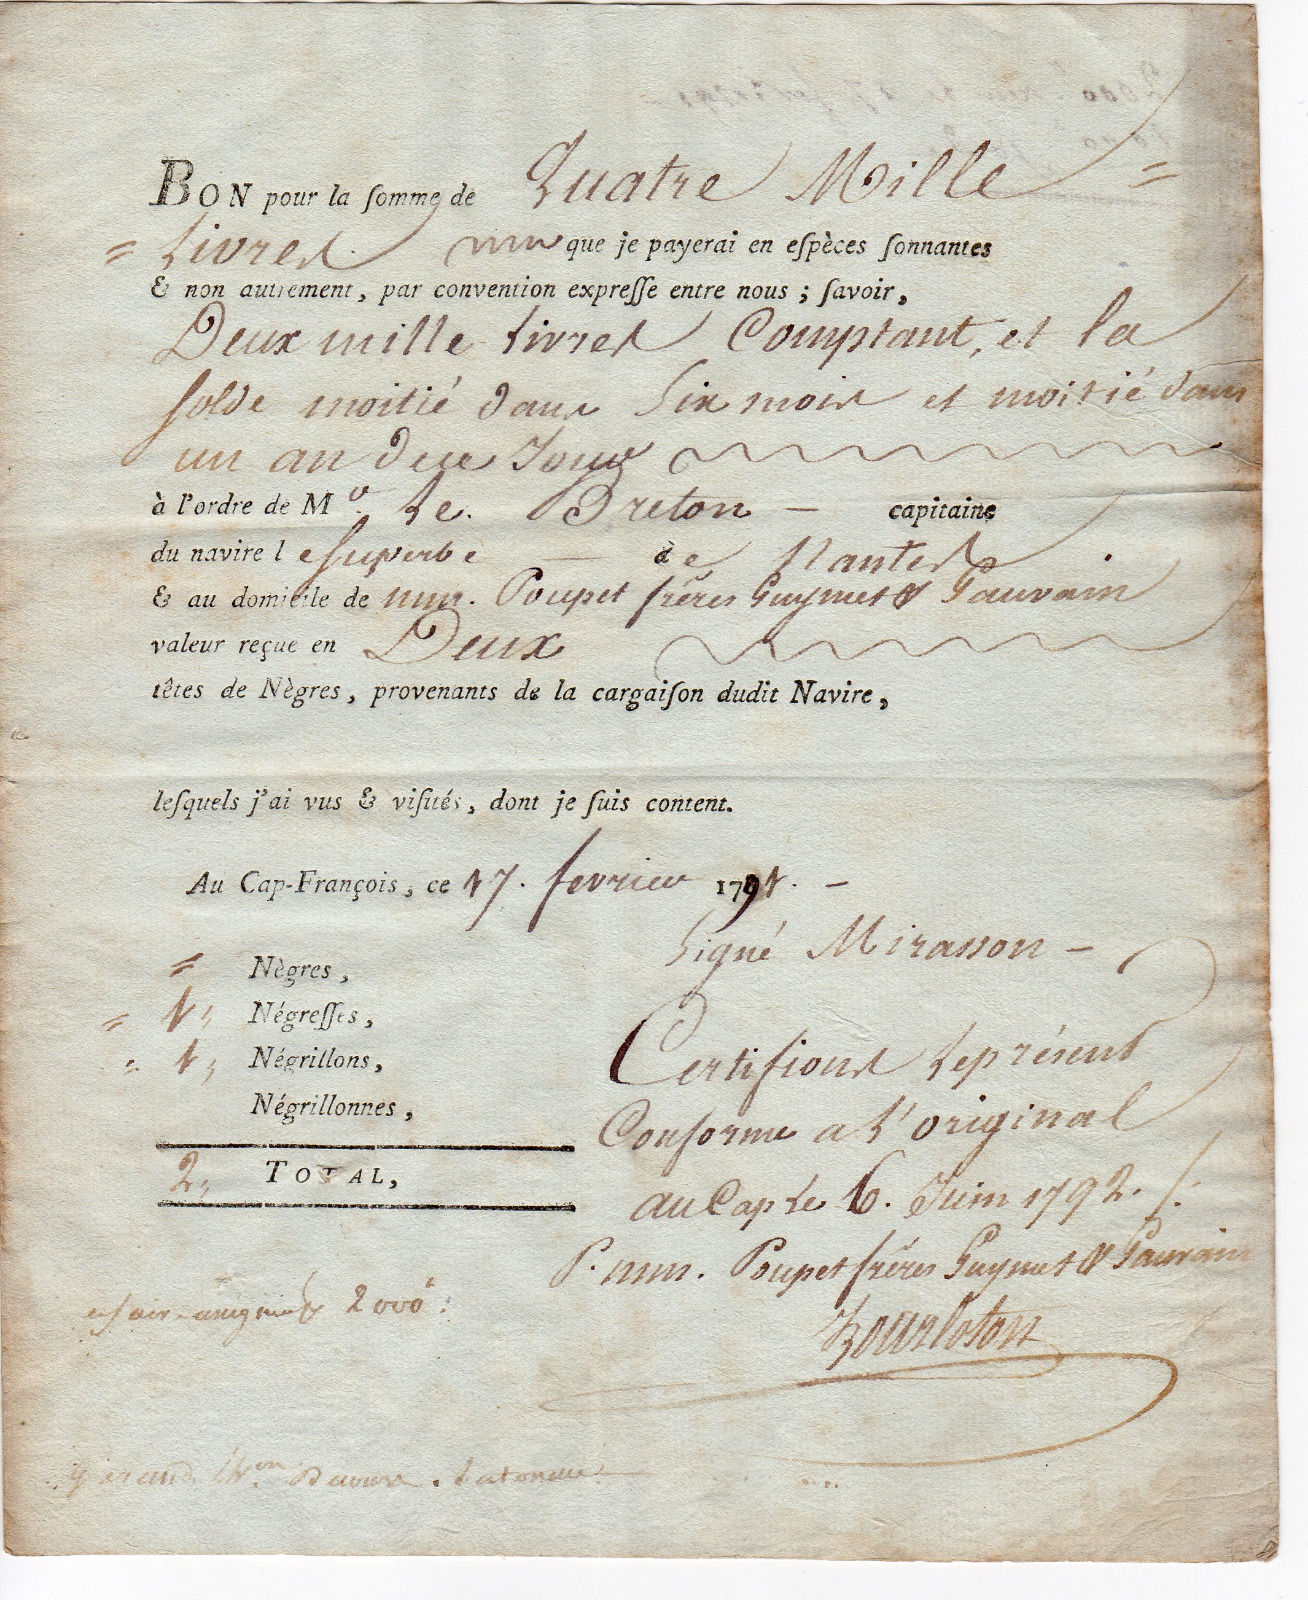 BON pour la ſomme de Quatre Mille =
= Livres. que je payerai en eſpèces ſonnantes
& non autrement, par convention expreſſe entre nous ; ſavoir,
Deux mille Livres Comptant, et la
solde moitié dans Six mois et moitié dans
un an de ce Jour
à l'ordre de Mr. Le. Breton — capitaine
du navire le Superbe — de Nantes
& au domicile de mm. Poupet frères Guymet & Gauvain
valeur reçue en Deux
têtes de Nègres, provenants de la cargaiſon dudit Navire,
leſquels j'ai vus & viſités, dont je ſuis content.
Au Cap-François, ce 17. fevrier 1791. —
Signé Mirasson —
= Nègres,
= 1, Négreſſes,
1, Négrillons,
Négrillonnes,
2, TOTAL,
Certifions Le présent
Conforme a L'original
au Cap Le 6. Juin 1792. /:
P. mm. Poupet frères Guymet & Gauvain
2000